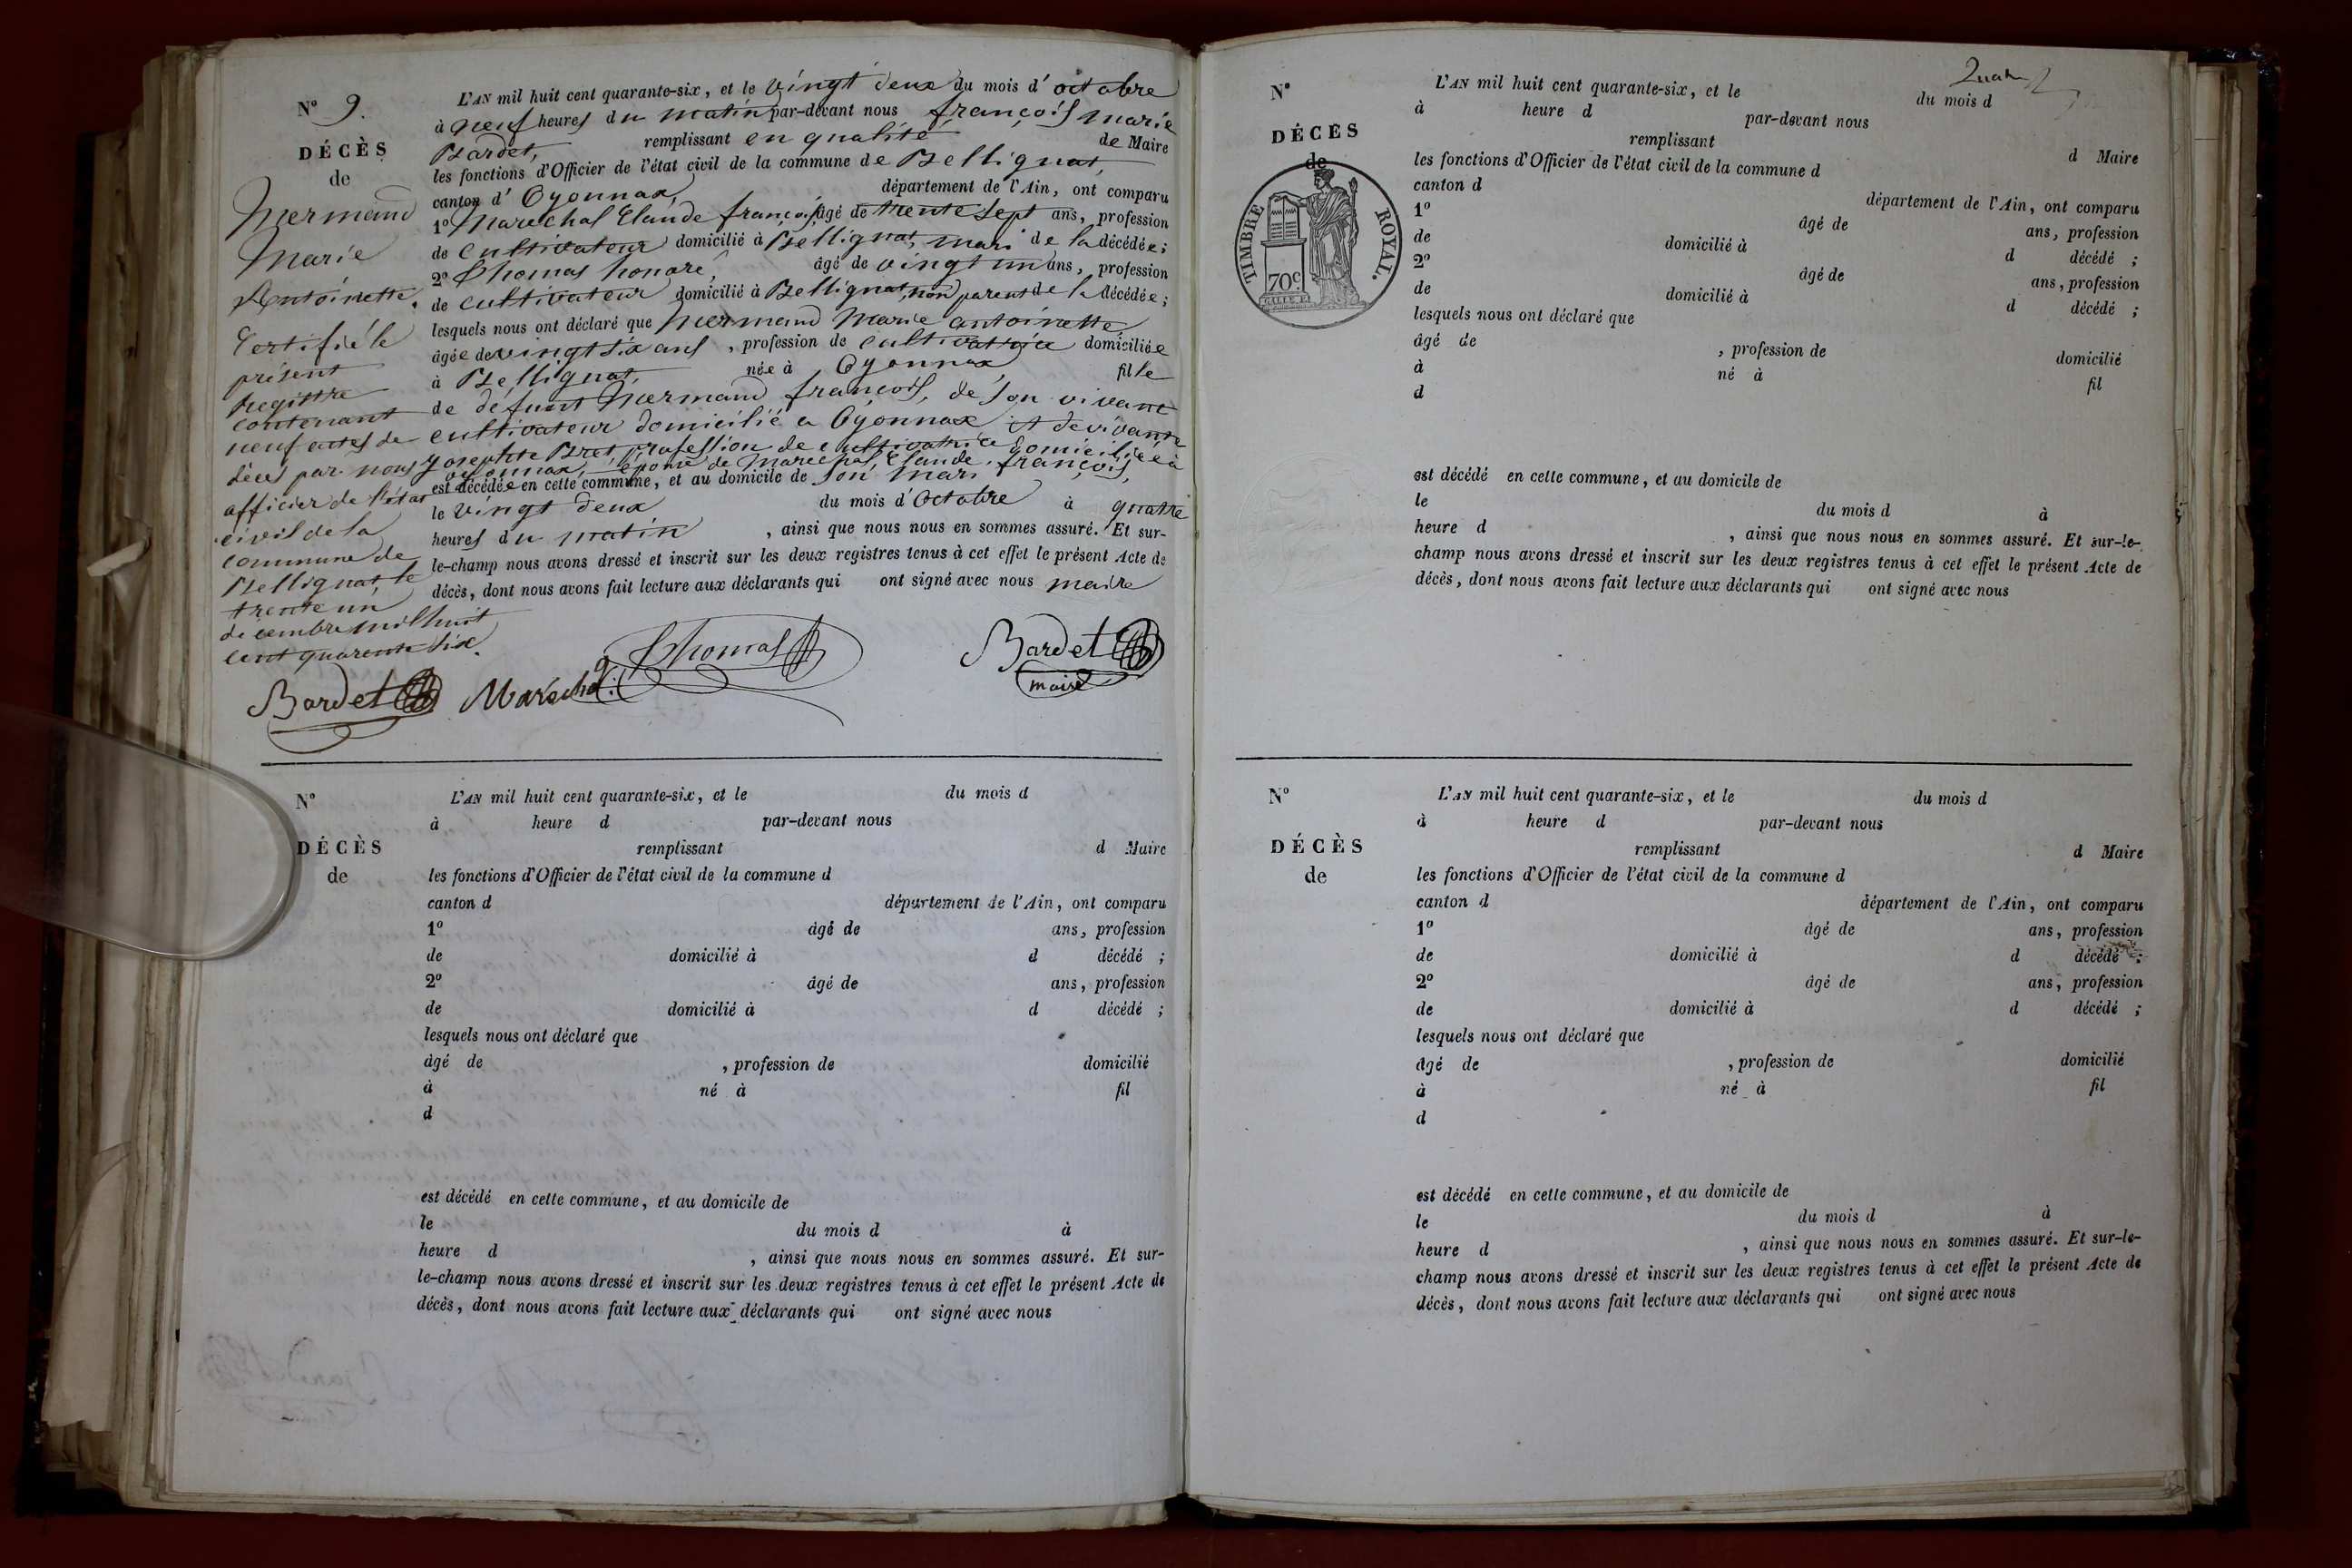 N° 9.
DÉCÈS
de
Mermand
Marie
Antoinette.
Certifié le
présent
Registre
contenant
neuf actes de
décès par nous
officier de l'état
civil de la
commune de
Bellignat, le
trente un
décembre mil huit
cent quarente six.
Bardet
L'AN mil huit cent quarante-six, et le vingt deux du mois d'octobre
à neuf heures du matin par-devant nous françois marie
Bardet, remplissant en qualité de Maire
les fonctions d'Officier de l'état civil de la commune de Bellignat,
canton d'Oyonnax, département de l'Ain, ont comparu
1° Maréchal Claude françois, âgé de trente sept ans, profession
de cultivateur domicilié à Bellignat, mari de la décédée;
2° Thomas honoré, âgé de vingt un ans, profession
de cultivateur domicilié à Bellignat, non parent de la décédée;
lesquels nous ont déclaré que Mermand Marie antoinette
âgée de vingt six ans, profession de cultivatrice domiciliée
à Bellignat, née à Oyonnax, fille
de défunt Mermand françois, de son vivant
cultivateur domicilié a Oyonnax et de vivante
yosephte Bret, profession de cultivatrice domiciliée à
oyonnax, épouse de Maréchal, Claude, françois,
est décédée en cette commune, et au domicile de son mari
le vingt deux du mois d'octobre à quatre
heures du matin, ainsi que nous nous en sommes assuré. Et sur-
le-champ nous avons dressé et inscrit sur les deux registres tenus à cet effet le présent Acte de
décès, dont nous avons fait lecture aux déclarants qui ont signé avec nous maire
Maréchal
Thomas
Bardet
maire
N°
DÉCÈS
de
L'AN mil huit cent quarante-six, et le du mois d
à heure d par-devant nous
remplissant d Maire
les fonctions d'Officier de l'état civil de la commune d
canton d département de l'Ain, ont comparu
1° âgé de ans, profession
de domicilié à d décédé ;
2° âgé de ans, profession
de domicilié à d décédé ;
lesquels nous ont déclaré que
âgé de , profession de domicilié
à né à fil
d
est décédé en cette commune, et au domicile de
le du mois d à
heure d , ainsi que nous nous en sommes assuré. Et sur-
le-champ nous avons dressé et inscrit sur les deux registres tenus à cet effet le présent Acte de
décès, dont nous avons fait lecture aux déclarants qui ont signé avec nous
N°
DÉCÈS
de
TIMBRE ROYAL.
70c
L'AN mil huit cent quarante-six, et le du mois d
à heure d par-devant nous
remplissant d Maire
les fonctions d'Officier de l'état civil de la commune d
canton d département de l'Ain, ont comparu
1° âgé de ans, profession
de domicilié à d décédé ;
2° âgé de ans, profession
de domicilié à d décédé ;
lesquels nous ont déclaré que
âgé de , profession de domicilié
à né à fil
d
est décédé en cette commune, et au domicile de
le du mois d à
heure d , ainsi que nous nous en sommes assuré. Et sur-le-
champ nous avons dressé et inscrit sur les deux registres tenus à cet effet le présent Acte de
décès, dont nous avons fait lecture aux déclarants qui ont signé avec nous
N°
DÉCÈS
de
L'AN mil huit cent quarante-six, et le du mois d
à heure d par-devant nous
remplissant d Maire
les fonctions d'Officier de l'état civil de la commune d
canton d département de l'Ain, ont comparu
1° âgé de ans, profession
de domicilié à d décédé ;
2° âgé de ans, profession
de domicilié à d décédé ;
lesquels nous ont déclaré que
âgé de , profession de domicilié
à né à fil
d
est décédé en cette commune, et au domicile de
le du mois d à
heure d , ainsi que nous nous en sommes assuré. Et sur-le-
champ nous avons dressé et inscrit sur les deux registres tenus à cet effet le présent Acte de
décès, dont nous avons fait lecture aux déclarants qui ont signé avec nous